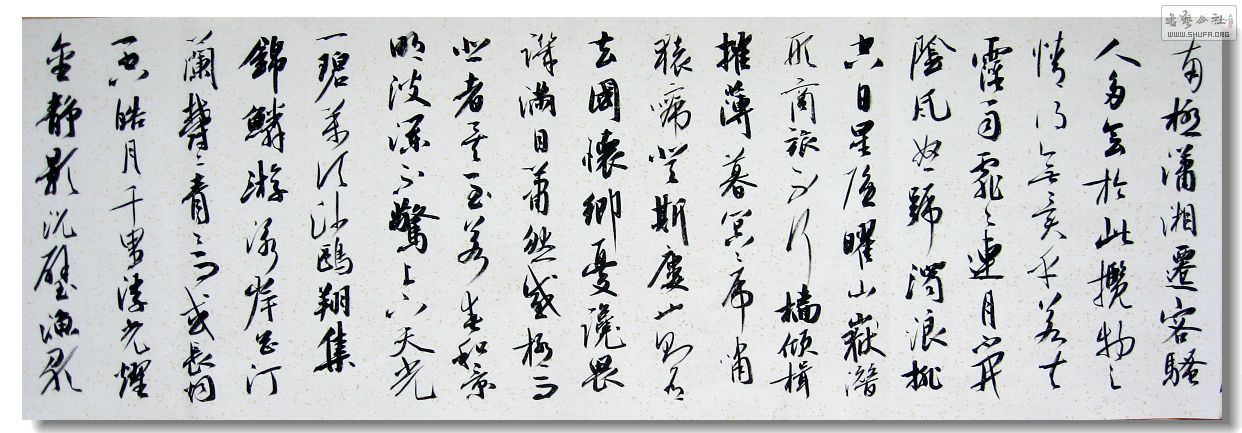 南極瀟湘遷客騷
人多會於此攬物之
情得無異乎若夫
霪雨霏〻連月不開
陰風怒號濁浪排
空日星隱曜山嶽潛
形商旅不行檣傾楫
摧薄暮冥〻虎嘯
猿啼登斯樓也則有
去國懷鄉憂讒畏
譏滿目蕭然感極而
悲者矣至若春和景
明波瀾不驚上下天光
一碧萬頃沙鷗翔集
錦鱗游泳岸芷汀
蘭鬱〻青〻而或長烟
一空皓月千里浮光燿
金靜影沉璧漁歌
書藝公社
WWW.SHUFA.ORG